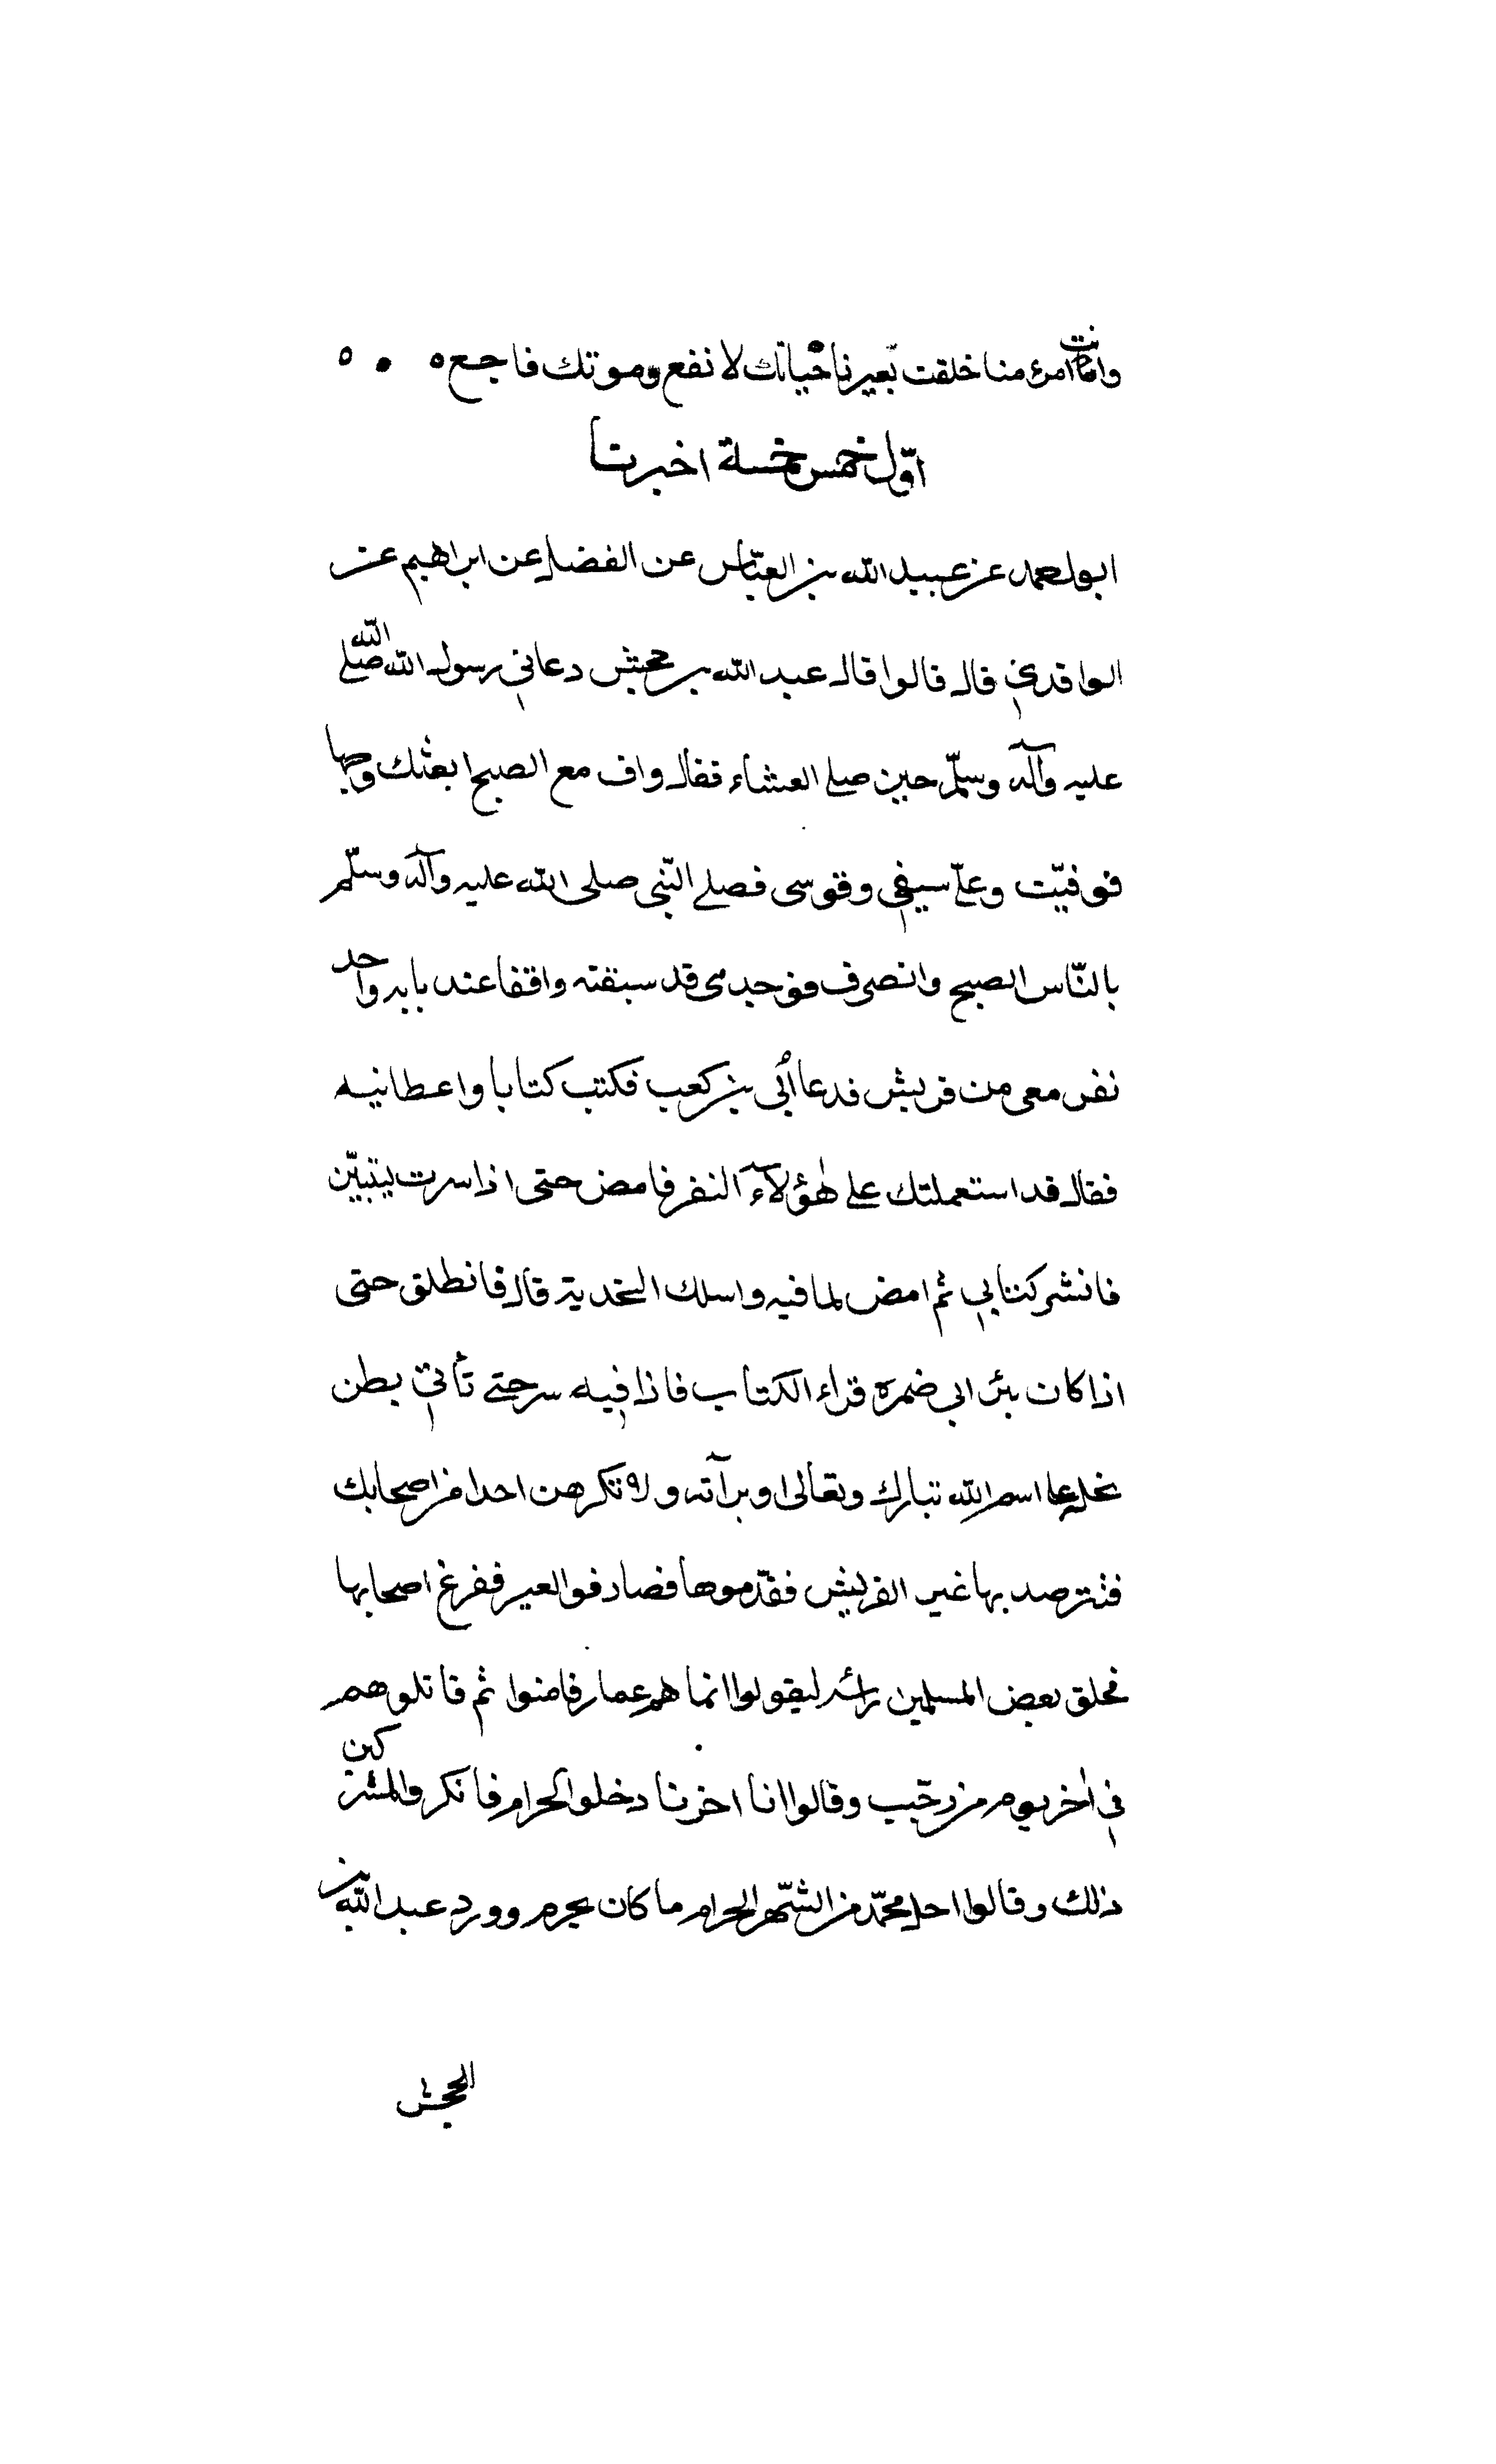 وانت امرؤ منا خلقت بغيرنا حياتك لا نفع وموتك فاجع
اوّل خمس خمسة اخبرنا
ابو احمد عن عبيد الله بن العبّاس عن الفضل عن ابراهيم عن
الواقدي قال قالوا قال عبد الله بن جحش دعاني رسول الله صلى الله
عليه وآله وسلّم حين صلى العشاء فقال واف مع الصبح ابعثك وجها
فوفيّت وعليّ سيفي وقوسى فصلى النّبى صلى الله عليه وآله وسلّم
بالنّاس الصبح وانصرف فوجدنى قد سبقته واقفا عند بابه واحد
نفر معى من قريش فدعا أبى بن كعب فكتب كتابا واعطانيه
فقال قد استعملتك على هؤلآء النفر فامض حتى اذا سرت ليتبيّن
فانشر كتابي ثم امض لما فيه واسلك النخدية قال فانطلق حتى
اذا كان بئر ابي ضمره قراء الكتاب فاذا فيه سر حتى تأتي بطن
نخله على اسم الله تبارك وتعالى وبرآته ولا تكرهن احدا من اصحابك
فنترصد بها غير القريش فقدّموها فصادفوا العير ففرغ اصحابها
فحلق بعض المسلمين راسه ليقولوا انما هم عمار فامنوا ثم قاتلوهم
في أخر يوم من رجب وقالوا انا اخرنا دخلوا الحرام فانكر والمشركين
ذلك وقالوا احل محمّد من الشّهر الحرام ما كان يحرم وورد عبد الله بن
الجحش